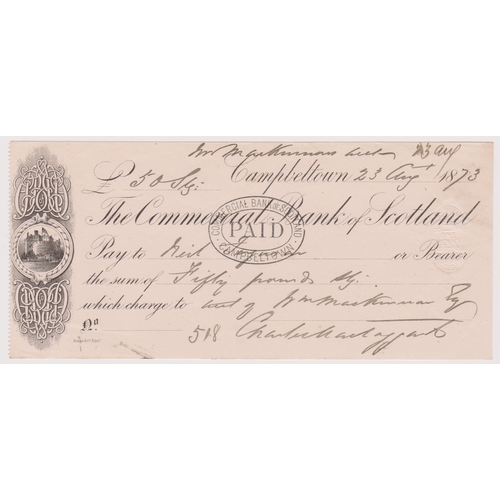 Wm Mackinnons acct 23 aug
£ 50 Stg: Campbeltown 23 Augt 1873
The Commercial Bank of Scotland
COMMERCIAL BANK OF SCOTLAND
PAID
CAMPBELTOWN
Pay to Neil or Bearer
the sum of Fifty pounds Stg.
which charge to acct of Wm Mackinnon Esq
No. 518 Charles Mactaggart